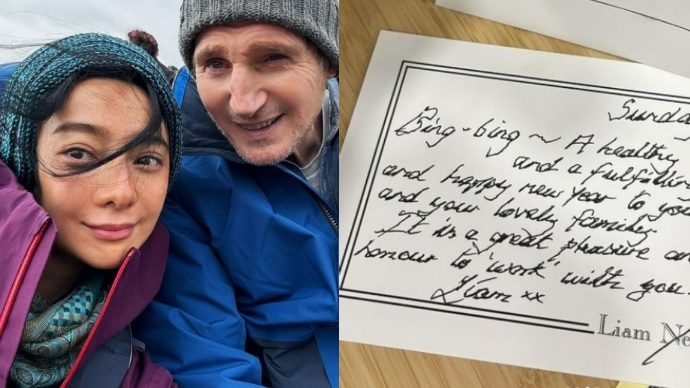 Sunday
Bing-bing ~ A healthy
and a fulfillin
and happy new year to you
and your lovely family.
It is a great pleasure an
honour to 'work' with you.
Liam xx
Liam Ne